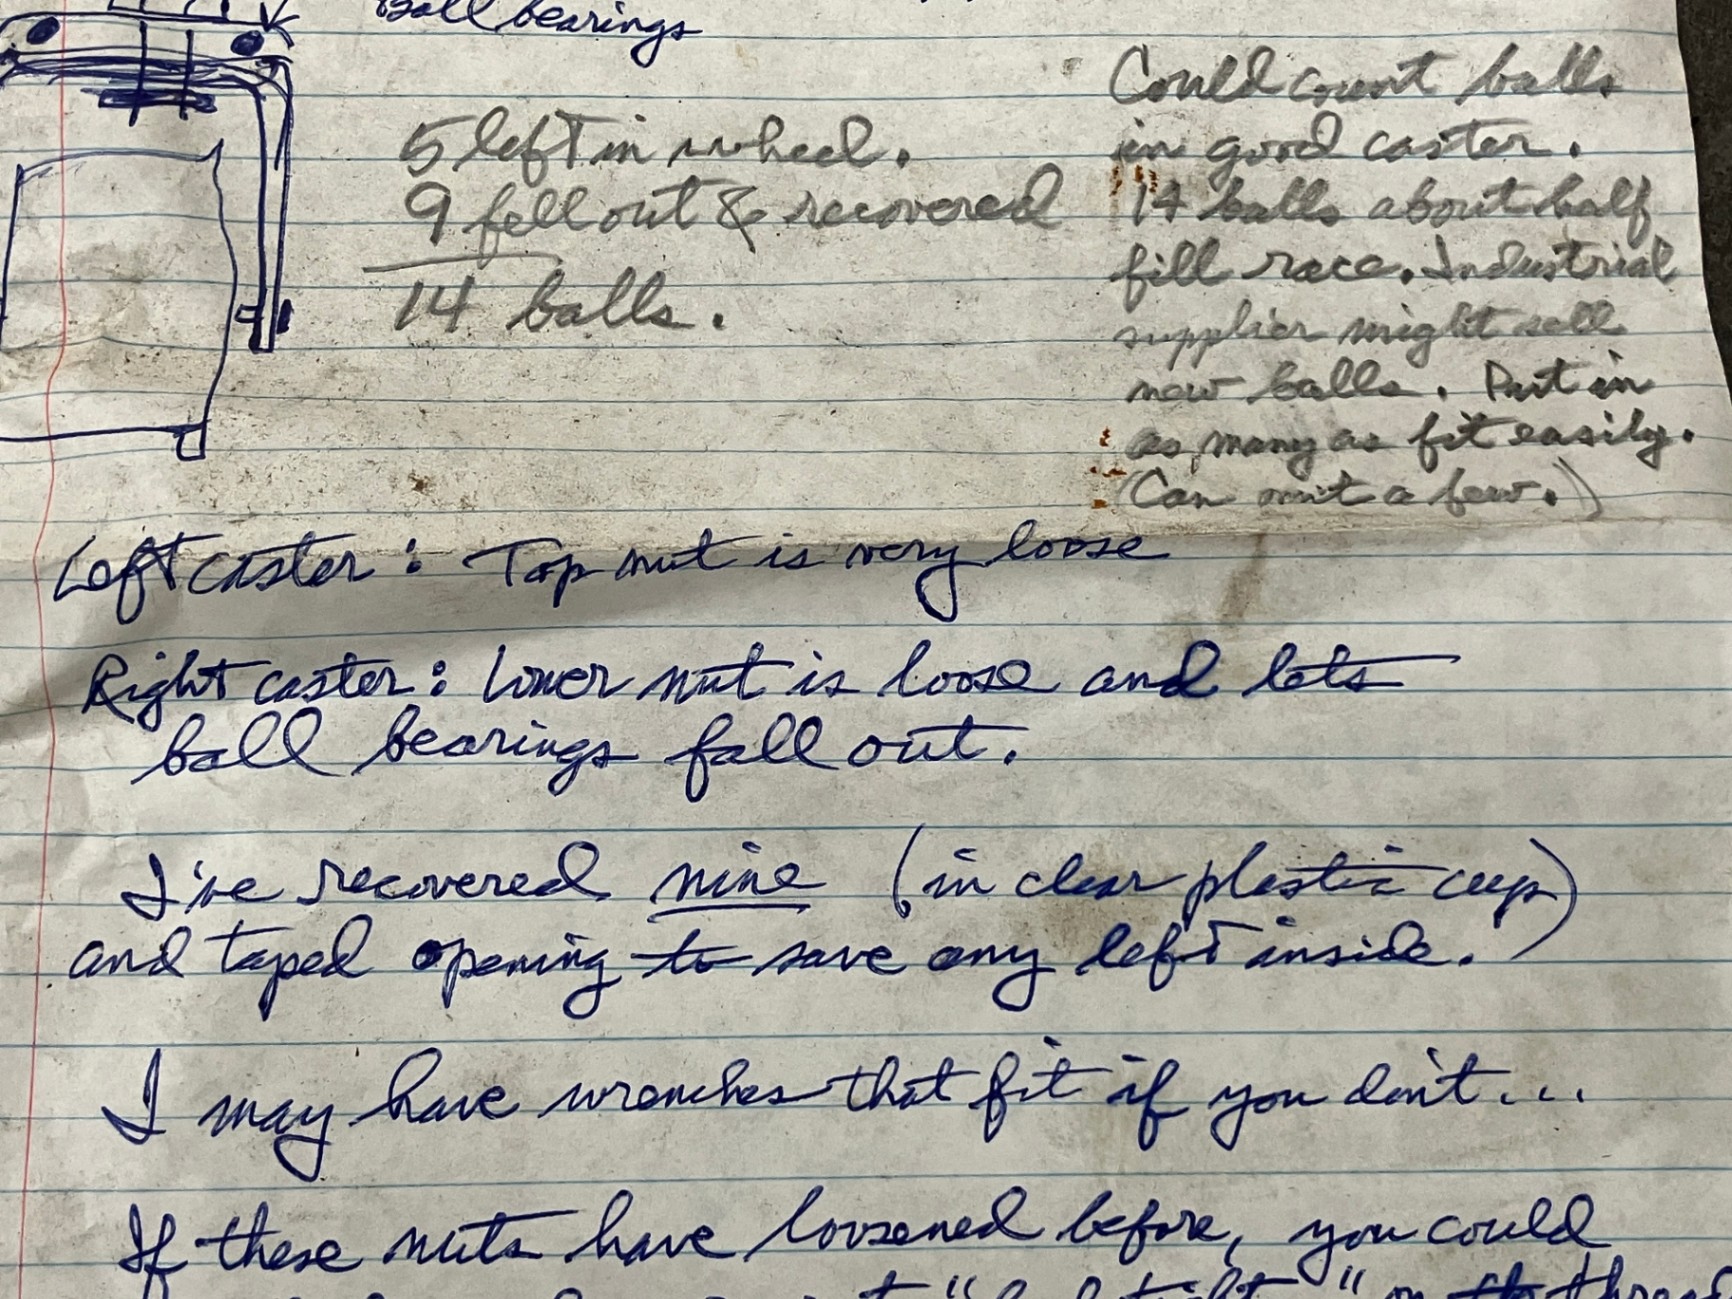 Ball bearings
5 left in wheel.
9 fell out & recovered
14 balls.
Could count balls
in good caster.
14 balls about half
fill race. Industrial
supplier might sell
new balls. Put in
as many as fit easily.
(Can omit a few.)
Left caster: Top nut is very loose
Right caster: Lower nut is loose and lets
ball bearings fall out.
I've recovered nine (in clear plastic cup)
and taped opening to save any left inside.
I may have wrenches that fit if you don't...
If these nuts have loosened before, you could
on the thread